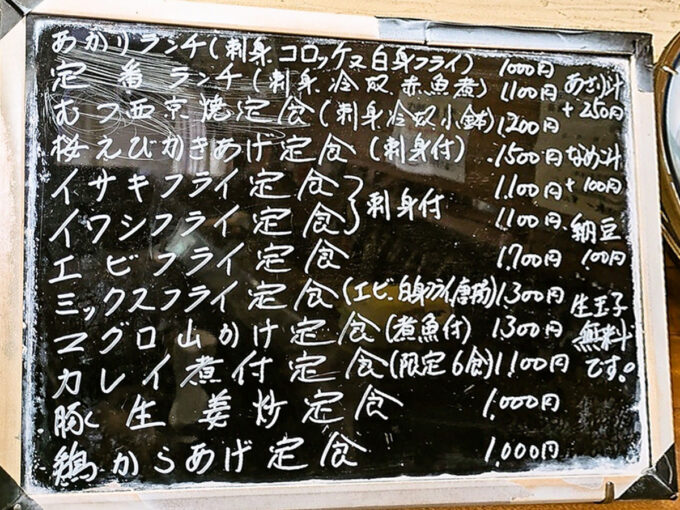 あかりランチ(刺身、コロッケ又白身フライ) 1000円
定番ランチ(刺身、冷奴、赤魚煮) 1,100円
むつ西京焼定食(刺身、冷奴、小鉢) 1,200円
桜えびかきあげ定食(刺身付) 1500円
イサキフライ定食 1,100円
イワシフライ定食 1,100円
刺身付
エビフライ定食 1,700円
ミックスフライ定食(エビ、白身フライ、唐揚) 1,300円
マグロ山かけ定食(煮魚付) 1300円
カレイ煮付定食(限定6食) 1,100円
豚生姜炒定食 1,000円
鶏からあげ定食 1,000円
あさり汁
+250円
なめこ汁
+100円
納豆
100円
生玉子
無料
です。